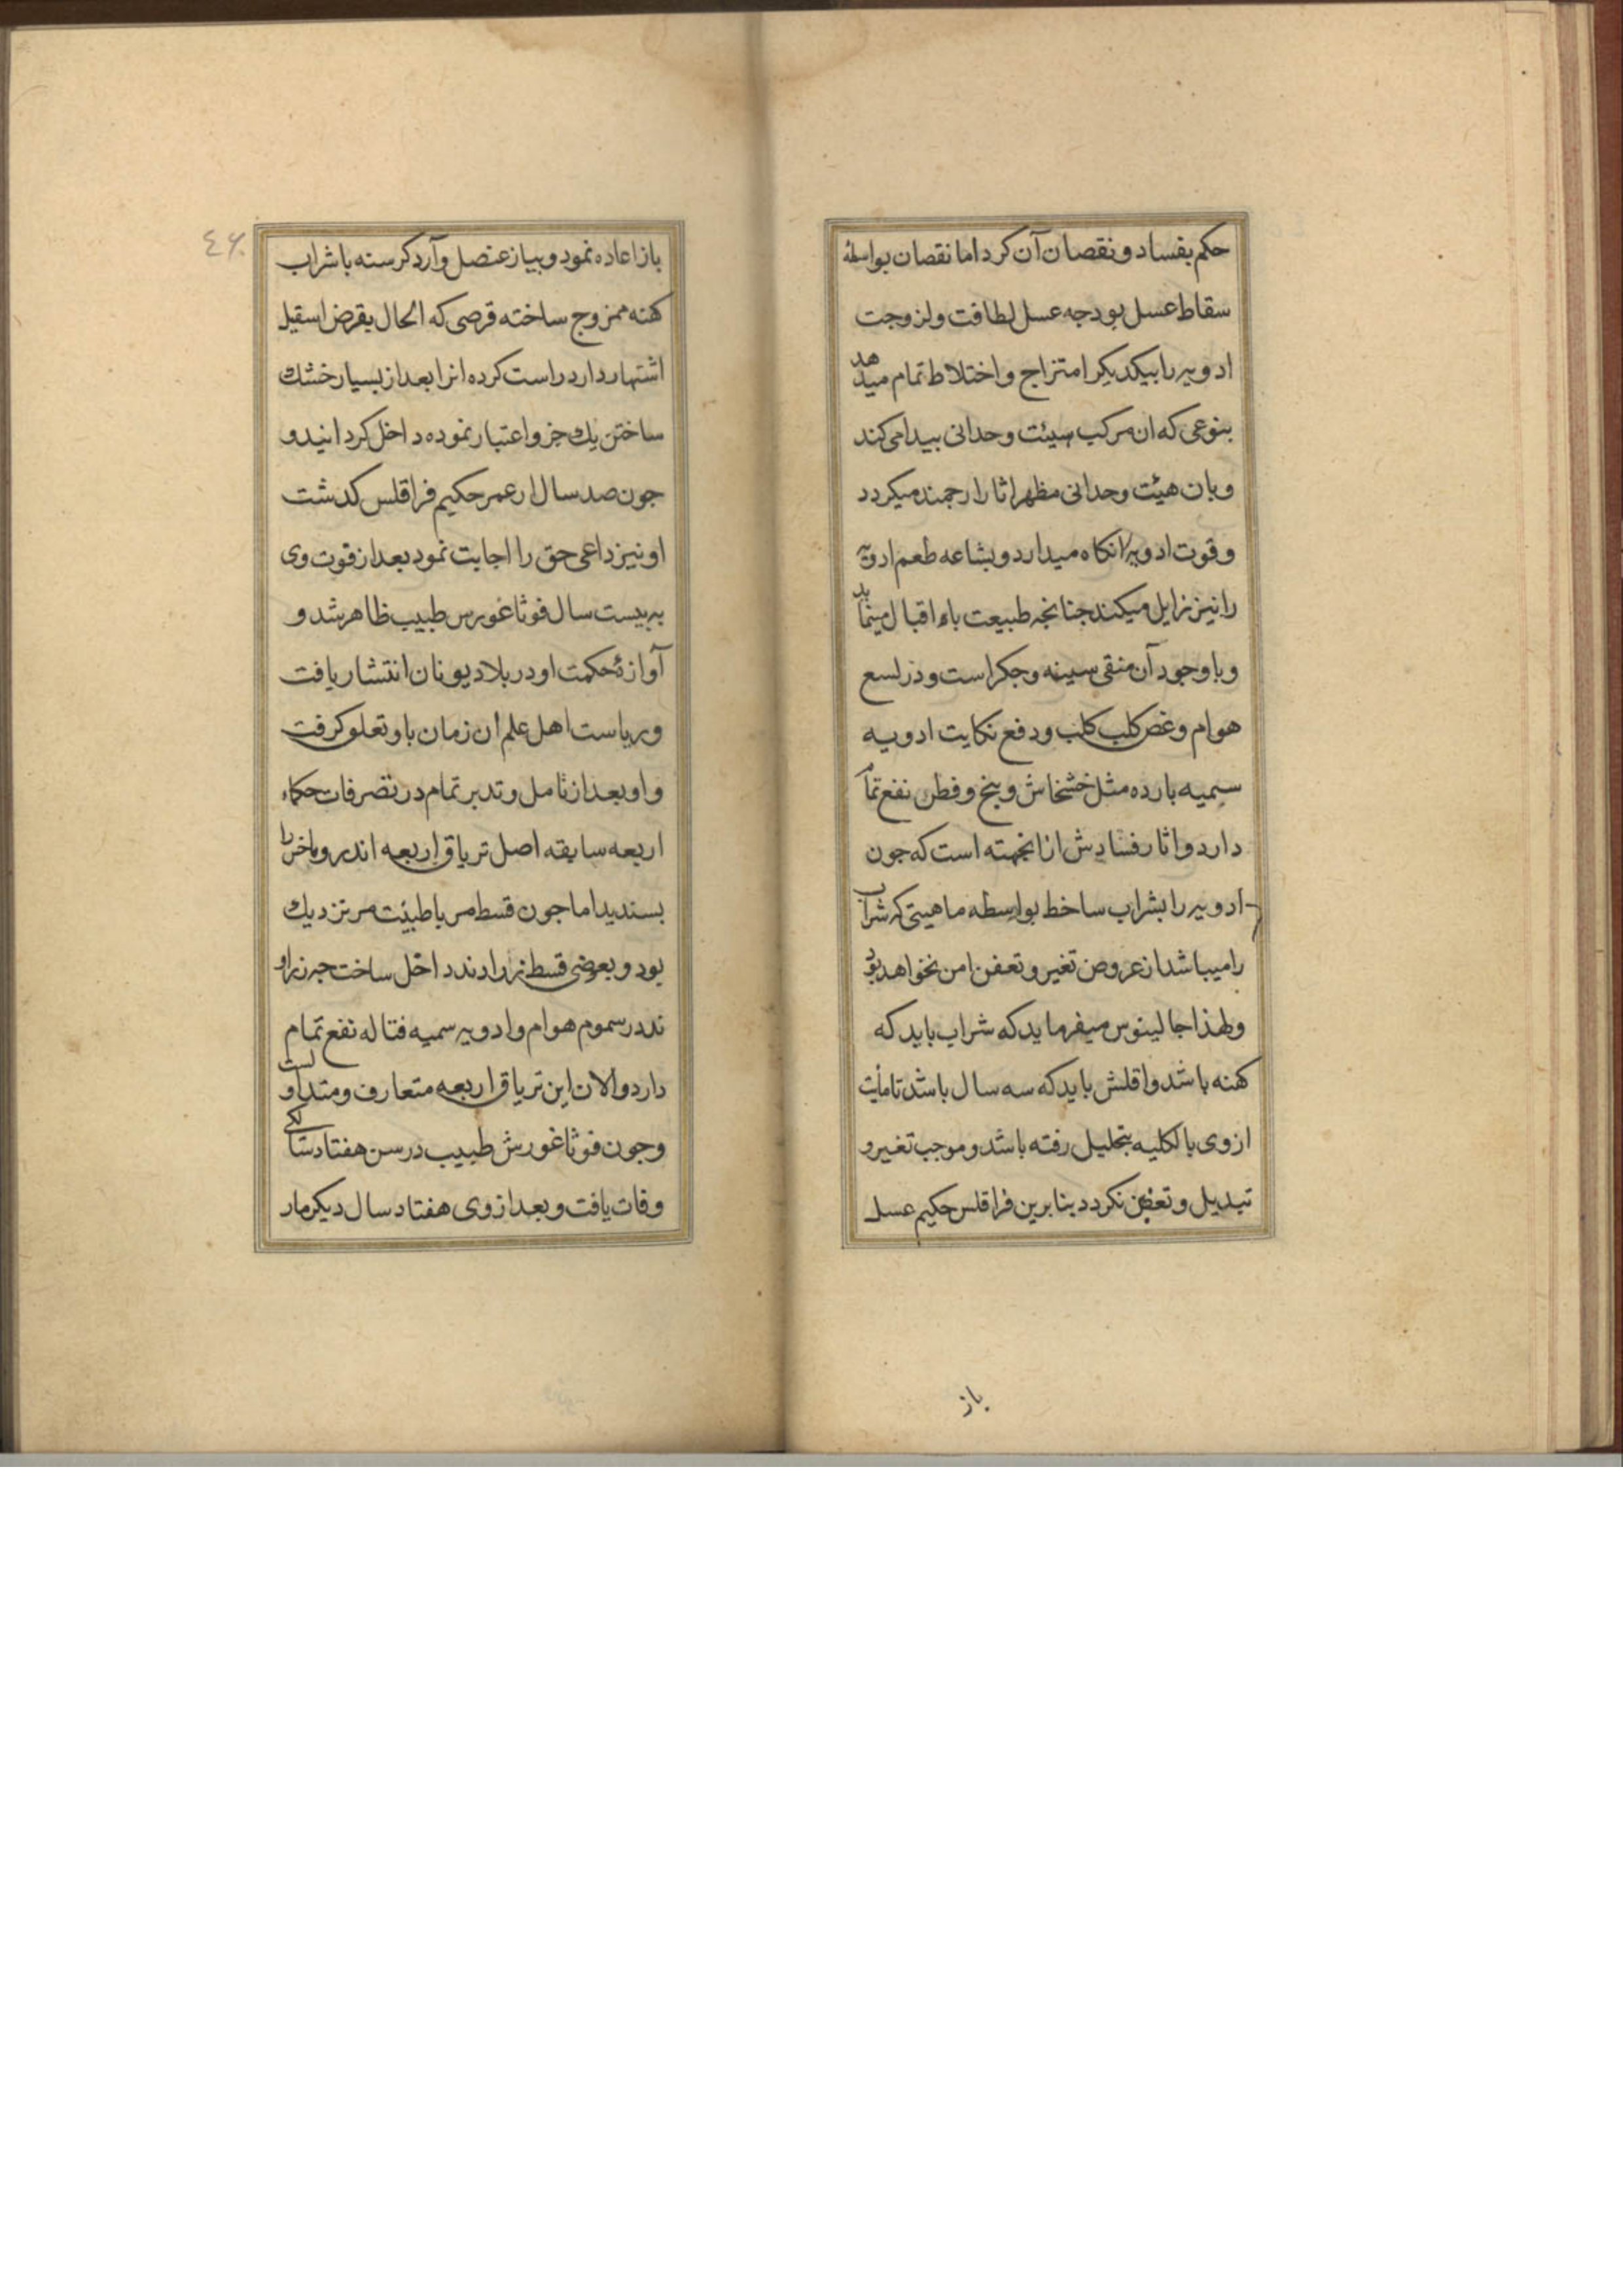 حکم بفساد و نقصان آن کرد اما نقصان بواسطهٔ
سقاط عسل بود جه عسل لطافت ولزوجت
ادویه را بیکدیکر امتزاج و اختلاط تمام میدهد
بنوعی که ان مرکب هیئت وحدانی بیدا می کند
وبان هیئت وحدانی مظهر اثار ارجمند میکردد
وقوت ادویه را نکاه میدارد وبشاعه طعم ادویه
را نیز زایل میکند جنانجه طبیعت باو اقبال مینماید
وباوجود آن منقی سینه وجکر است ودر لسع
هوام وعض کلب کلب ودفع نکایت ادویه
سمیه بارده مثل خشخاش وبنج وفطر نفع تمام
دارد واثار فسادش از انجهته است که جون
ادویه را بشراب ساخط بواسطه ماهیتی که شراب
را میباشد از عروض تغیر وتعفن امن نخواهد بود
ولهذا جالینوس میفرماید که شراب باید که
کهنه باشد واقلش باید که سه سال باشد تا مأیت
ازوی بالکلیه بتحلیل رفته باشد وموجب تغیر و
تبدیل وتعفن نکردد بنابرین فراقلس حکیم عسل
باز
٤٦
باز اعاده نمود وبیاز عنصل وآرد کرسنه باشراب
کهنه ممزوج ساخته قرصی که الحال بقرض اسقیل
اشتهار دارد راست کرده انرا بعد از بسیار خشک
ساختن یک جزو اعتبار نموده داخل کردانید و
جون صد سال از عمر حکیم فراقلس کدشت
او نیز داعی حق را اجابت نمود بعد از فوت وی
به بیست سال فوثاغورس طبیب ظاهر شد و
آوازهٔ حکمت او در بلاد یونان انتشار یافت
وریاست اهل علم ان زمان باو تعلق کرفت
واو بعد از تامل وتدبر تمام در تصرفات حکماء
اربعه سابقه اصل تریاق اربعه اندروماخس را
بسندید اما جون قسط مر باطبیٔت مر نزدیک
بود وبعوض قسط زراوند داخل ساخت جه زراو
ند در سموم هوام وادویه سمیه قتاله نفع تمام
دارد والان این تریاق اربعه متعارف ومتداولست
وجون فوثاغورش طبیب در سن هفتاد سالکی
وفات یافت وبعد از وی هفتاد سال دیکر مار